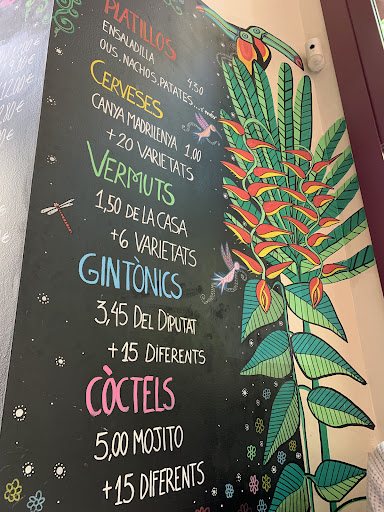 PLATILLOS
ENSALADILLA 4.50
OUS, NACHOS, PATATES...
CERVESES
CANYA MADRILENYA 1,00
+ 20 VARIETATS
VERMUTS
1,50 DE LA CASA
+6 VARIETATS
GINTÒNICS
3,45 DEL DIPUTAT
+ 15 DIFERENTS
CÒCTELS
5,00 MOJITO
+ 15 DIFERENTS